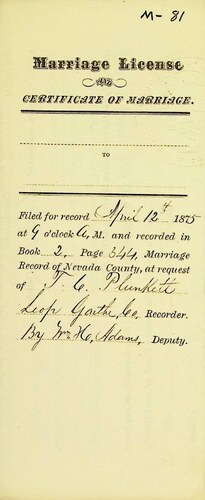 M - 81
Marriage License
AND
CERTIFICATE OF MARRIAGE.
TO
Filed for record April 12th 1875
at 9 o'clock A, M. and recorded in
Book 2, Page 344, Marriage
Record of Nevada County, at request
of T. C. Plunkett
Leop Garthe, Co, Recorder.
By Wm H, Adams, Deputy.